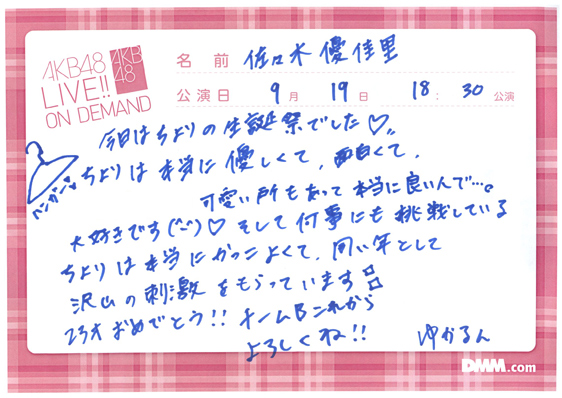 AKB48
LIVE!!
ON DEMAND
AKB
48
名前 佐々木優佳里
公演日 9月 19日 18:30 公演
今日はちよりの生誕祭でした♡
ハンガン
ちよりは本当に優しくて、面白くて、
可愛い所もあって本当に良いんで…。
大好きです(^-^)♡ そして何事にも挑戦している
ちよりは本当にかっこよくて、同い年として
沢山の刺激をもらっています
23才おめでとう!! チームBこれから
よろしくね!!
ゆかるん
DMM.com